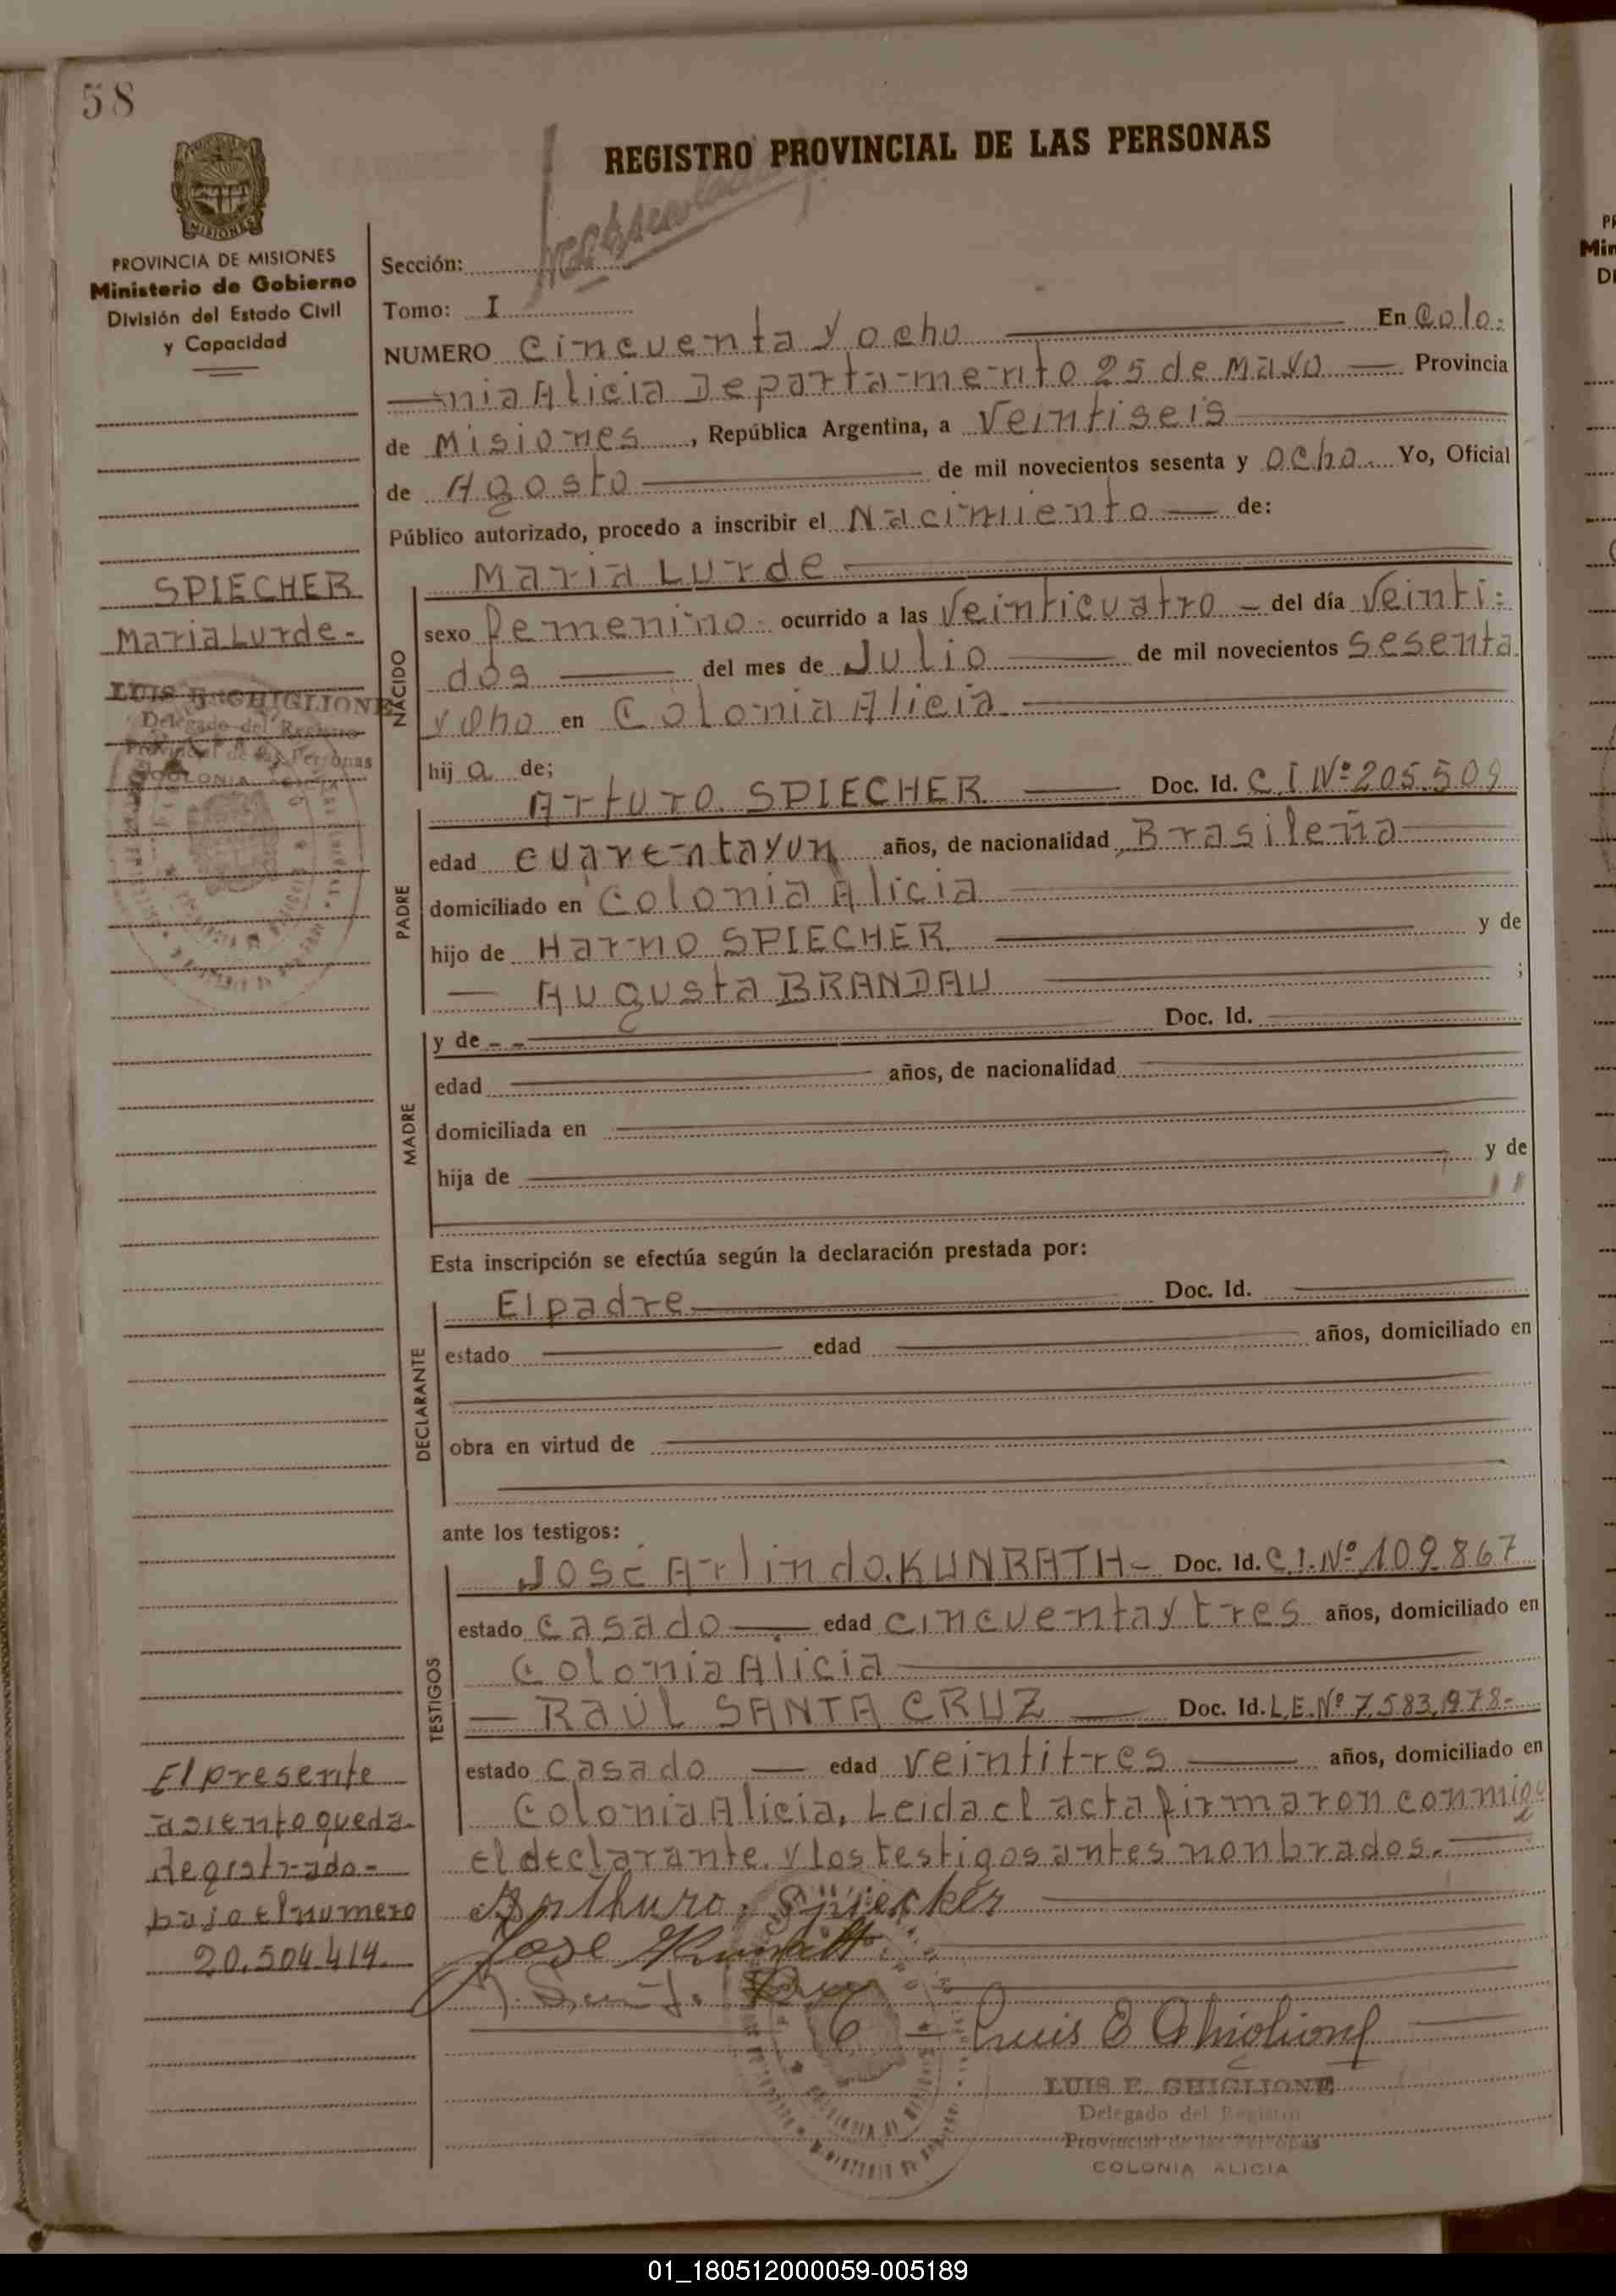 58
REGISTRO PROVINCIAL DE LAS PERSONAS
MISIONES
PROVINCIA DE MISIONES
Ministerio de Gobierno
División del Estado Civil
y Capacidad
Sección:
Tomo: I
NUMERO Cincuenta y ocho En Colo-
nia Alicia Departamento 25 de Mayo Provincia
de Misiones, República Argentina, a Veintiseis
de Agosto de mil novecientos sesenta y ocho. Yo, Oficial
Público autorizado, procedo a inscribir el Nacimiento de:
SPIECHER
Maria Lurde-
LUIS E. GHIGLIONE
Delegado del Registro
Provincial de las Personas
COLONIA ALICIA
NACIDO
Maria Lurde
sexo femenino. ocurrido a las Veinticuatro del día Veinti-
dós del mes de Julio de mil novecientos sesenta
y oho en Colonia Alicia
hij a de;
PADRE
Arturo SPIECHER Doc. Id. C.I Nº 205.509
edad cuarentayun años, de nacionalidad Brasileña
domiciliado en Colonia Alicia
hijo de Harno SPIECHER y de
Augusta BRANDAU ;
MADRE
y de Doc. Id.
edad años, de nacionalidad
domiciliada en
hija de y de
Esta inscripción se efectúa según la declaración prestada por:
DECLARANTE
El padre Doc. Id.
estado edad años, domiciliado en
obra en virtud de
ante los testigos:
TESTIGOS
José Arlindo KUNRATH- Doc. Id. C.I.Nº 109.867
estado casado edad cincuentaytres años, domiciliado en
Colonia Alicia
RAÚL SANTA CRUZ Doc. Id. L.E.Nº 7.583.978-
estado casado edad veintitres años, domiciliado en
Colonia Alicia. Leida el acta firmaron conmigo
el declarante y los testigos antes nonbrados.
El presente
asiento queda
Registrado-
bajo el numero
20.504.414.
Luis E Ghiglione
LUIS E. GHIGLIONE
Delegado del Registro
Provincial de las Personas
COLONIA ALICIA
01_180512000059-005189